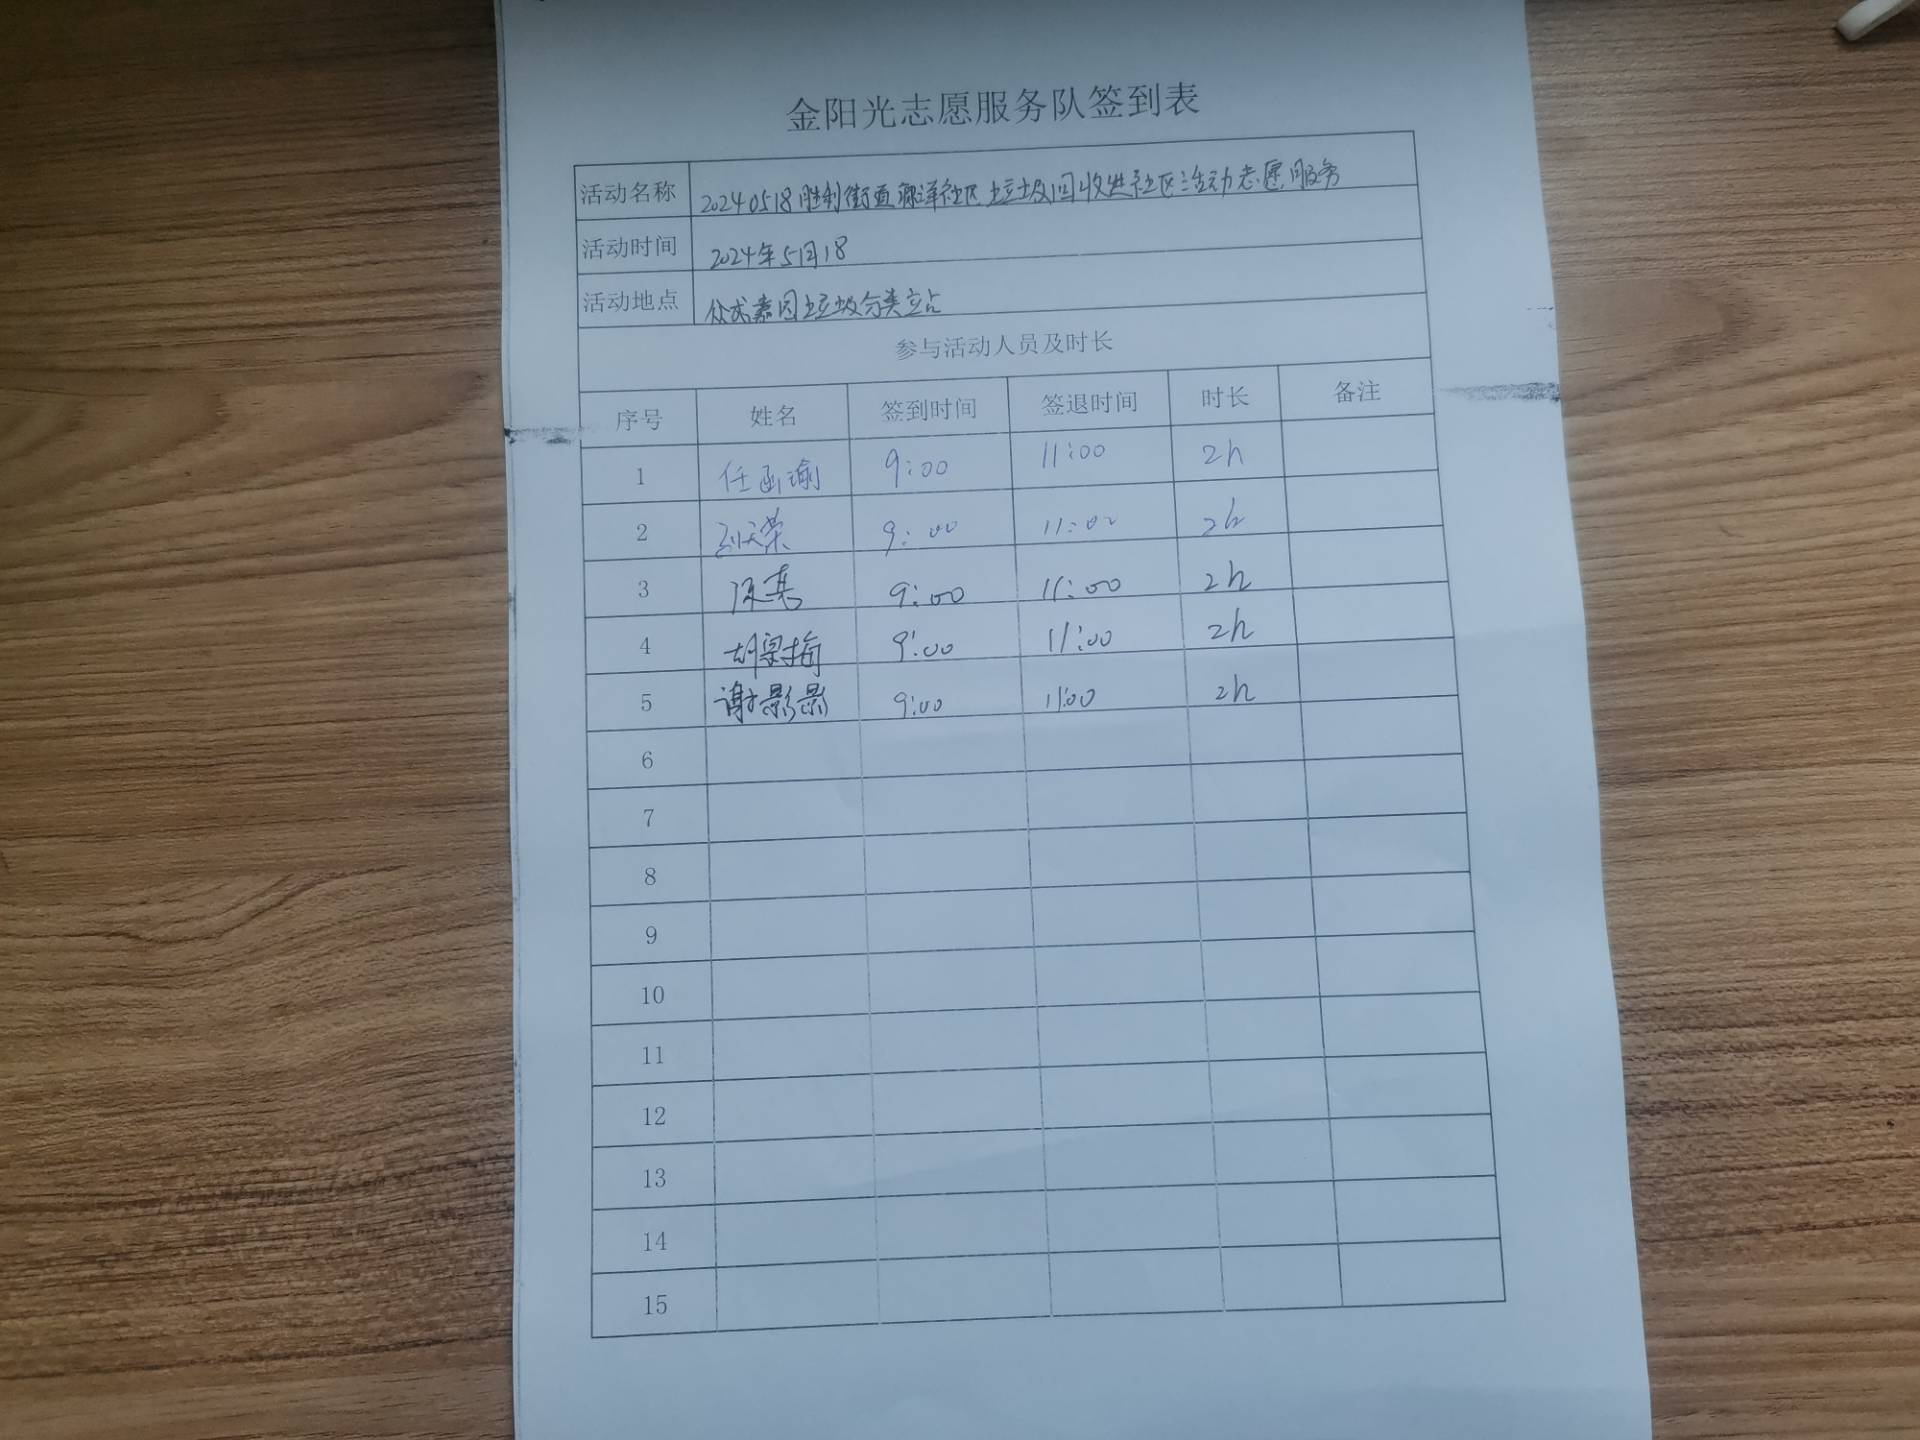 金阳光志愿服务队签到表
活动名称 20240518胜利街道 社区垃圾回收进社区活动志愿服务
活动时间 2024年5月18
活动地点 嘉园垃圾分类立占
参与活动人员及时长
序号 姓名 签到时间 签退时间 时长 备注
1 任函瑜 9:00 11:00 2h
2 荣 9:00 11:00 2h
3 9:00 11:00 2h
4 胡 梅 9:00 11:00 2h
5 谢影影 9:00 11:00 2h
6
7
8
9
10
11
12
13
14
15